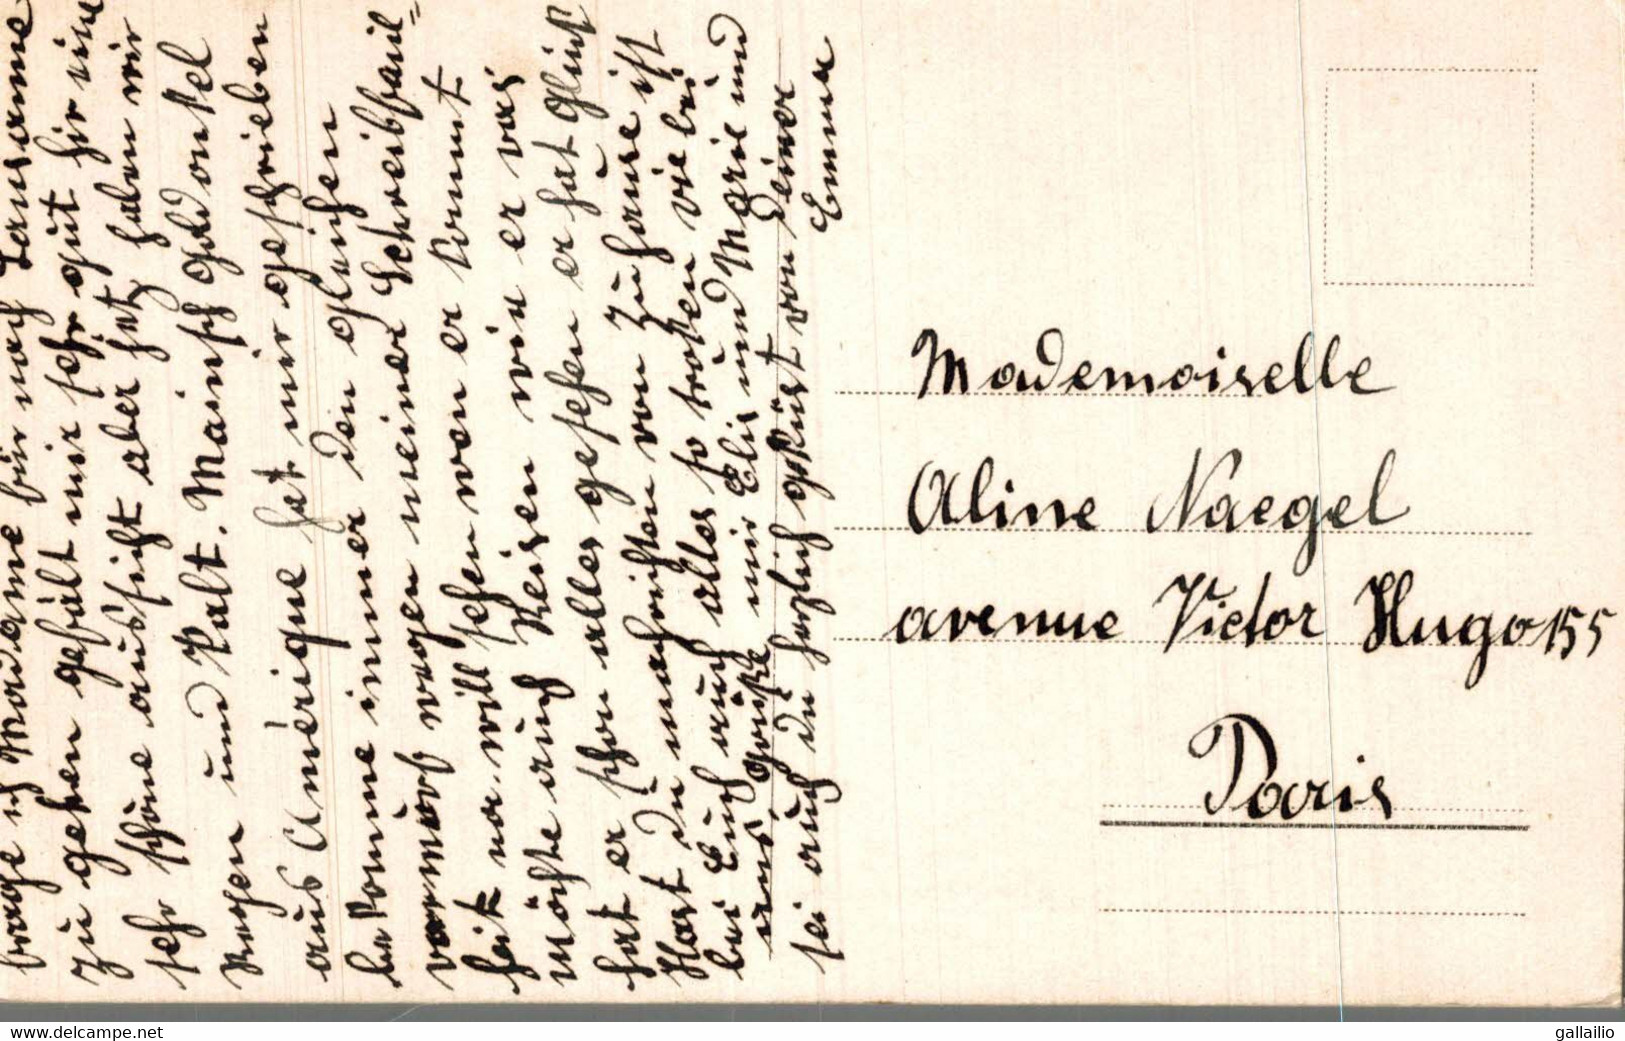 ich Madame bin nach Lausanne
zu gehen gefält mir sehr gut hir eine
sehr schöne aussicht aber jetz haben wir
Regen und Kalt. Mainsch Goldonkel
aus Amérique hat mir geschrieben
bekomme immer den gleichen
vorwurf wegen meiner Schreibfaul=
heit na. will sehen wen er kommt
möchte auch Reisen wie er was
hat er schon alles gesehen er hat glück
Hast du nachrichten von zuhause ist
bei Euch auch alles so troken wie bei
uns Grüße mir Elis und Marie und
sei auch du herzlich geküst von deiner
Emma
Mademoiselle
Aline Naegel
avenue Victor Hugo 155
Paris
www.delcampe.net
gallailio